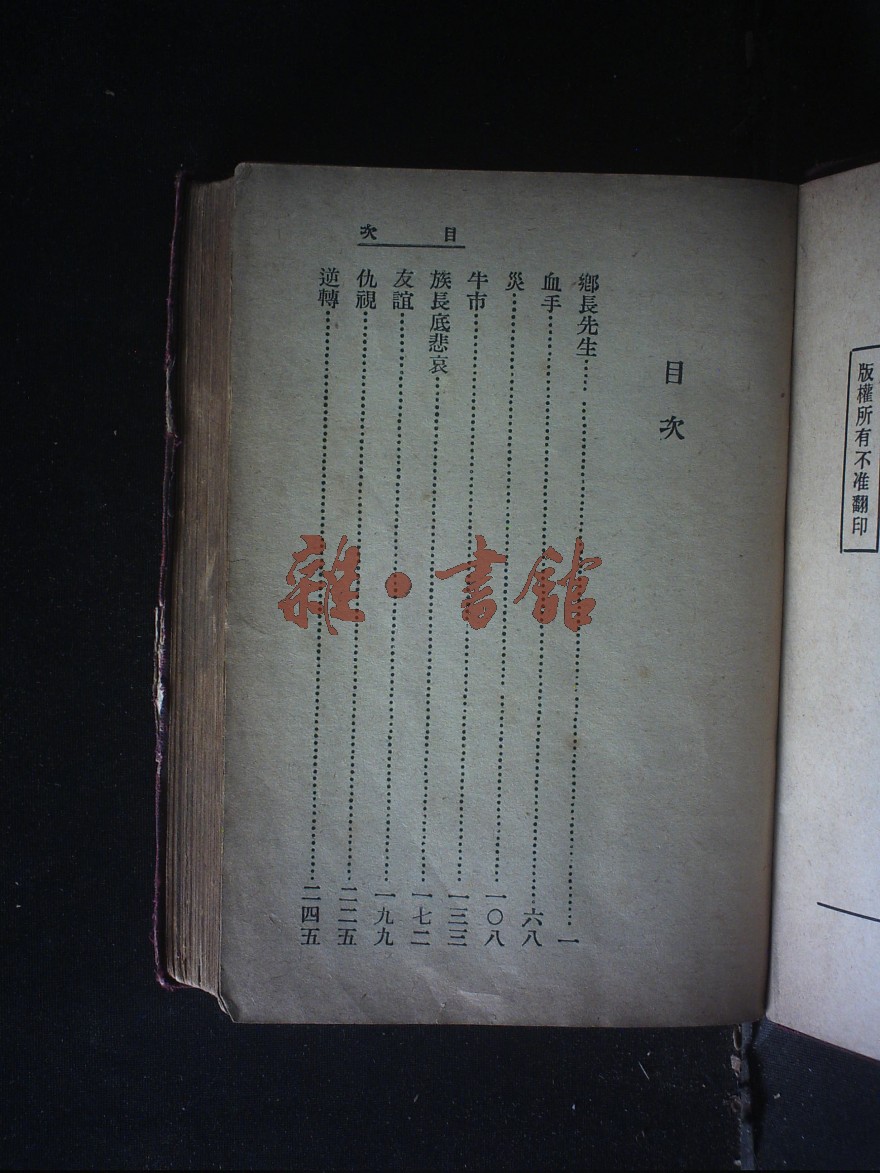 版權所有不准翻印
目次
目次
鄉長先生……一
血手……六八
災……一〇八
牛市……一三三
族長底悲哀……一七二
友誼……一九九
仇視……二二五
逆轉……二四五
雜·書館